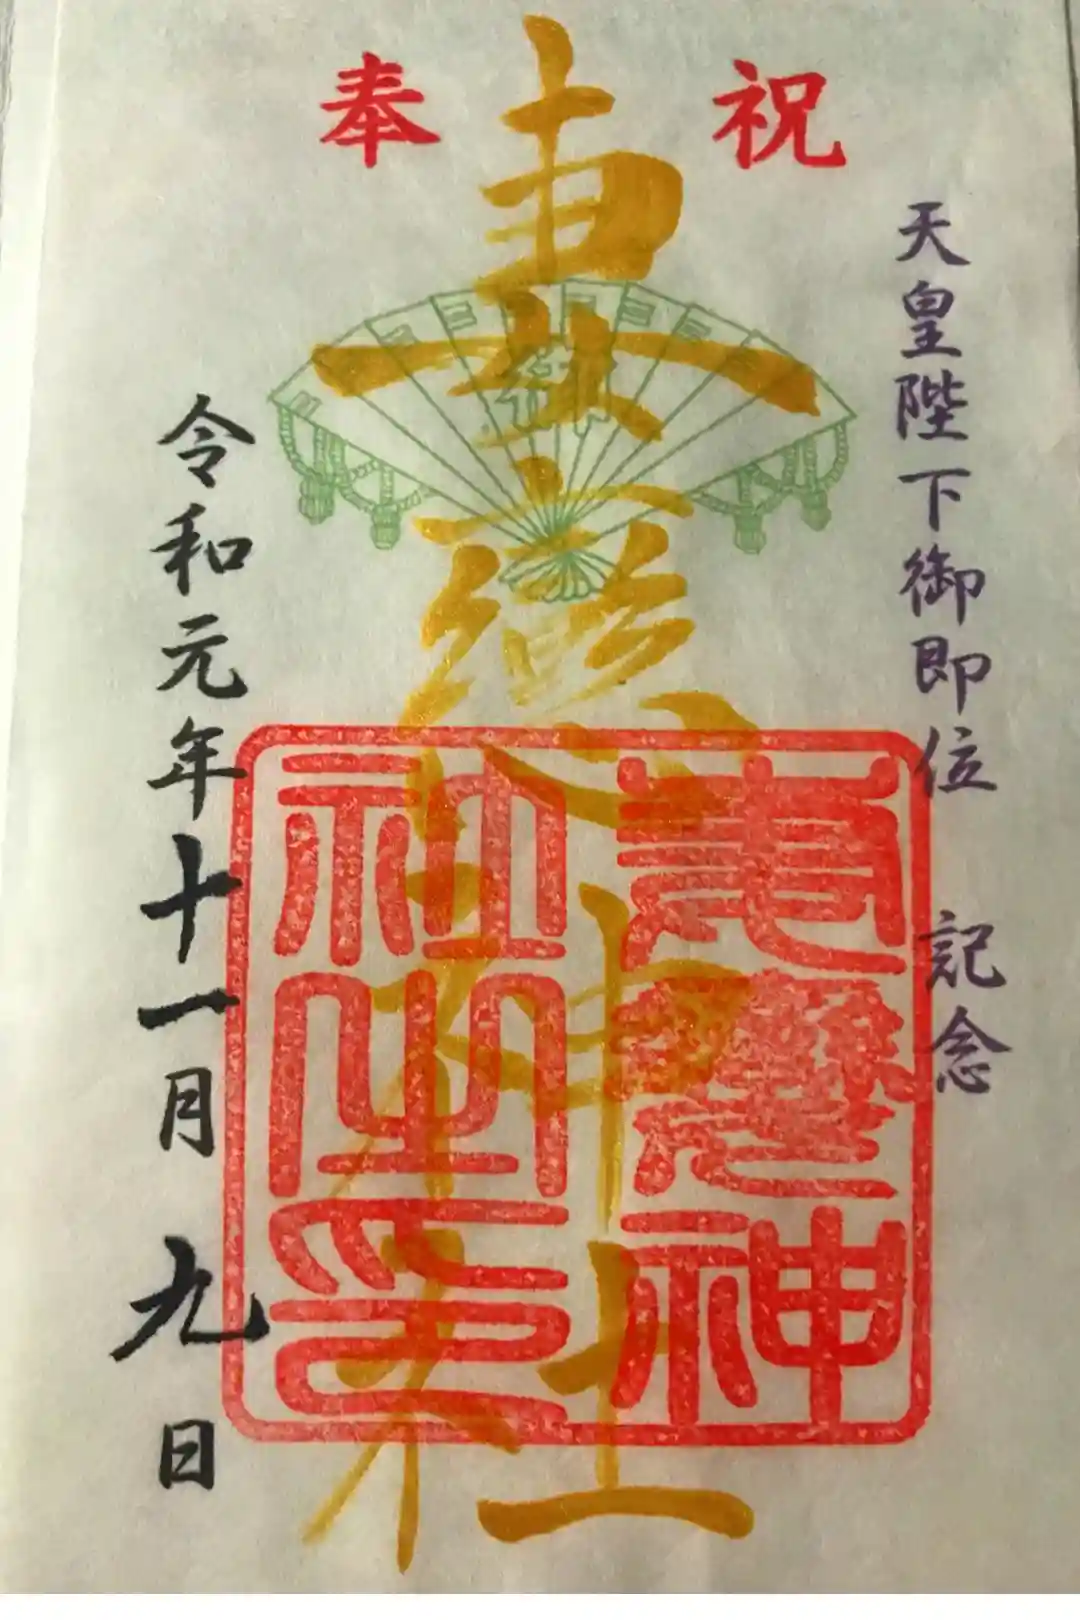 奉祝
天皇陛下御即位　記念
妻戀神社
妻戀神
社之印
令和元年十一月九日